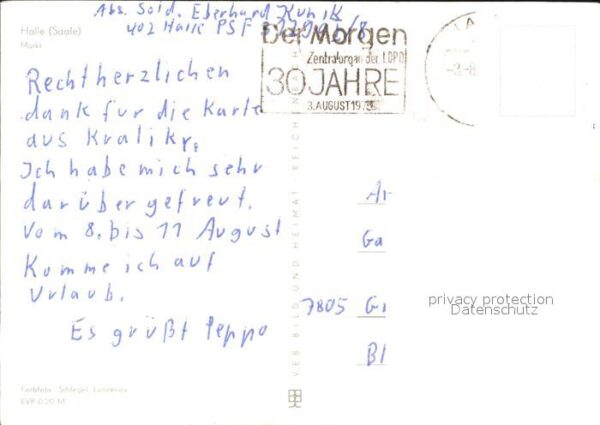 Halle (Saale)
Markt
Abs. Sold. Eberhard Kunik
402 Halle PSF
Der Morgen
Zentralorgan der LDPD
30 JAHRE
3. AUGUST 19
Rechtherzlichen
dank für die Karte
aus Kraliky.
Ich habe mich sehr
darüber gefreut.
Vom 8. bis 11 August
Komme ich auf
Urlaub.
Es grüßt Peppo
Ar
Ga
7805 Gr
Bl
VEB BILD UND HEIMAT REICHENBACH
privacy protection
Datenschutz
Farbfoto: Schlegel,
EVP 0.20 M